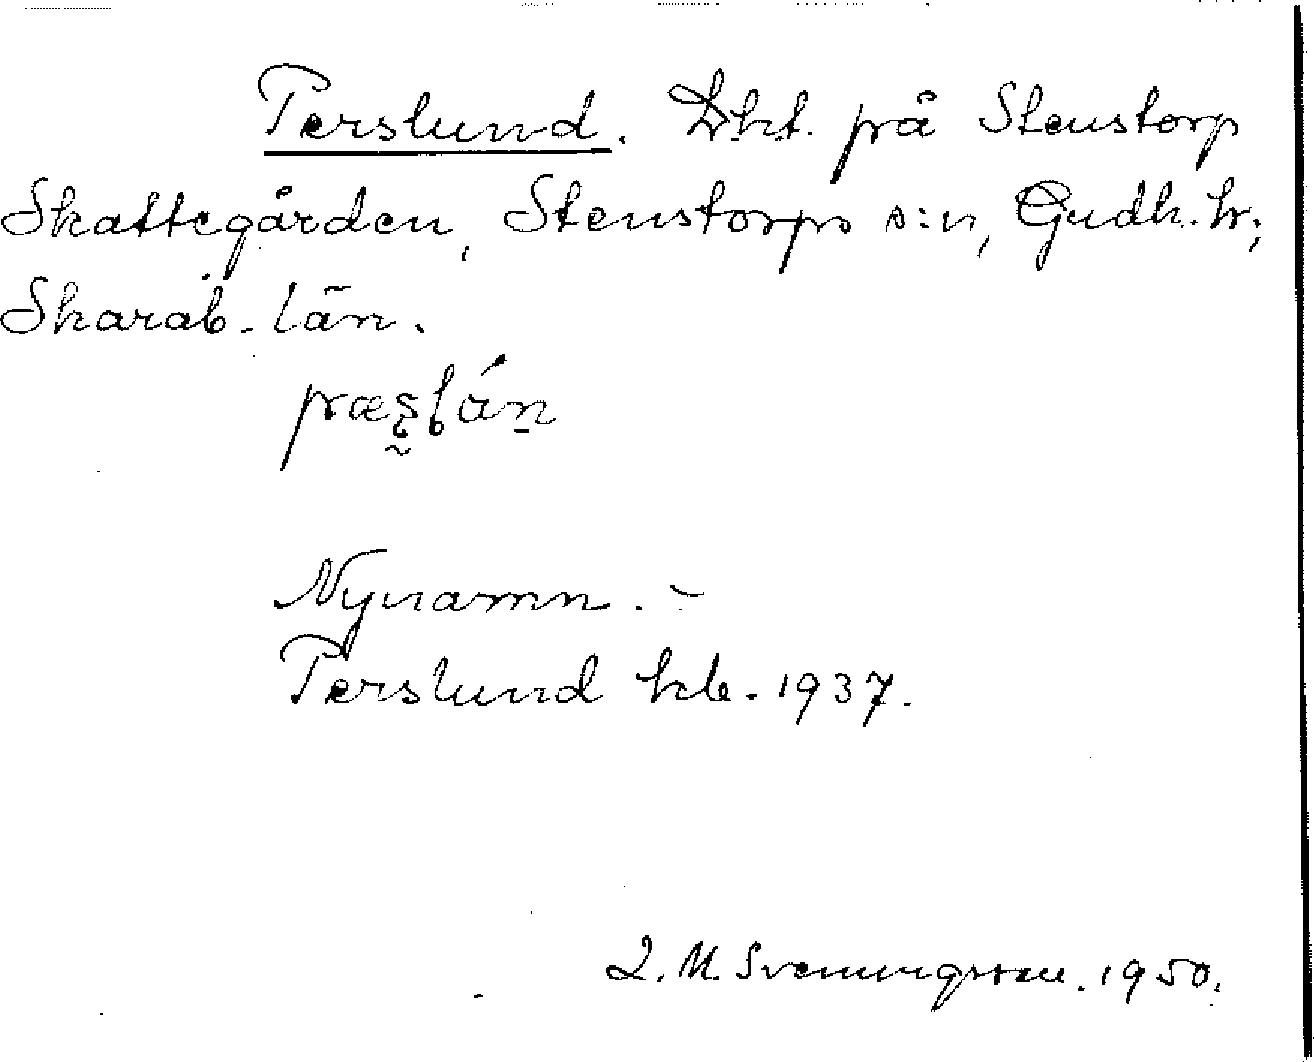 Perslund. Lht. på Stenstorp
Skattegården, Stenstorps s:n, Gudh. hr;
Skarab. län.
Nynamn. –
Perslund kb. 1937.
L. M. Svenungsson. 1950.